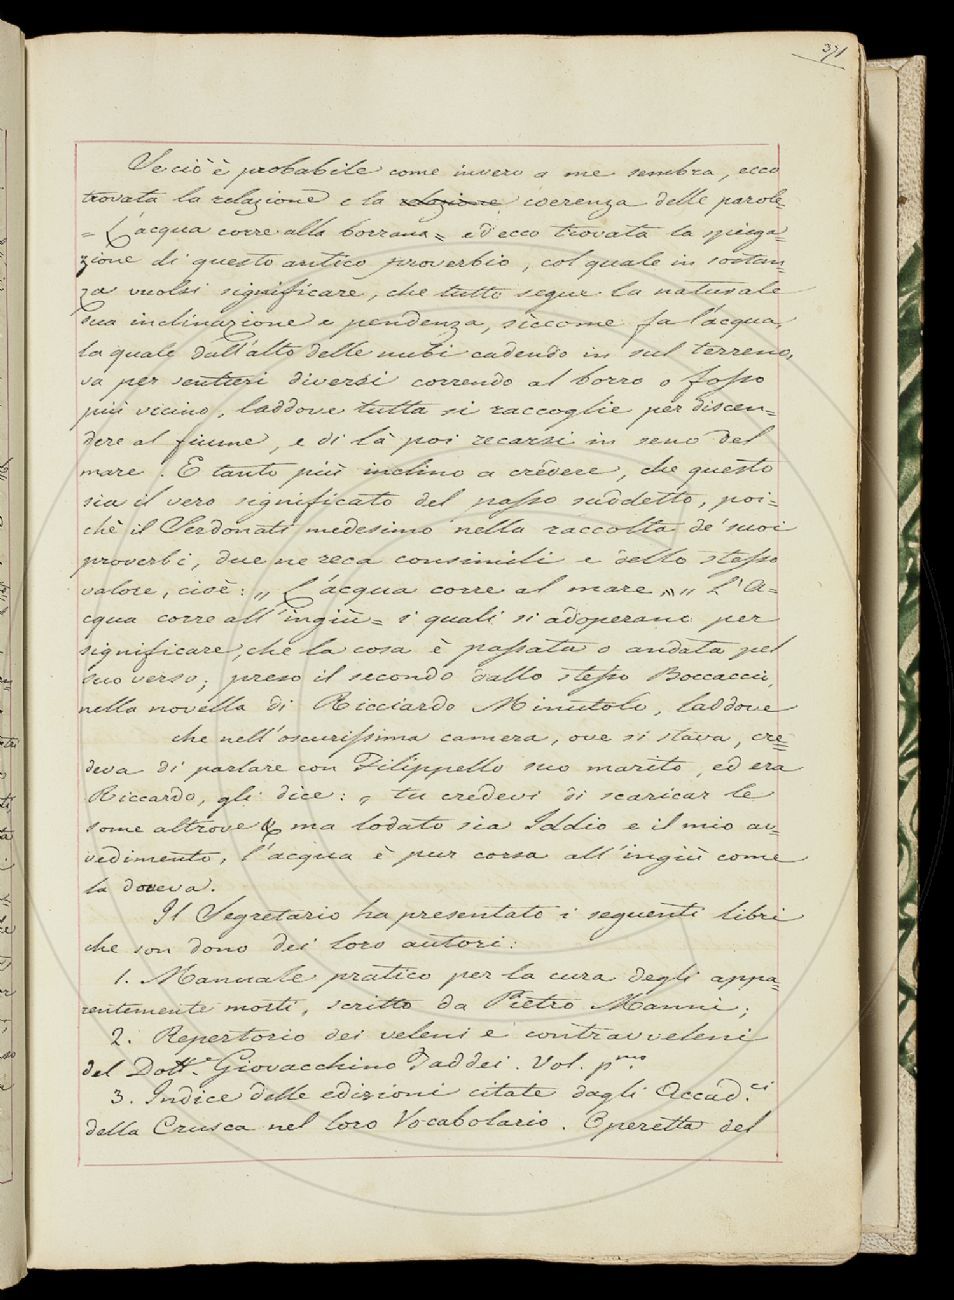 371
Se ciò è probabile come invero a me sembra, ecco
trovata la relazione e la relazione coerenza delle parole=
= L'acqua corre alla borrana = ed ecco trovata la spiega=
zione di questo antico proverbio, col quale in sostan=
za vuolsi significare, che tutto segue la naturale
sua inclinazione e pendenza, siccome fa l'acqua,
la quale dall'alto delle nubi cadendo in sul terreno,
va per sentieri diversi correndo al borro o fosso
più vicino, laddove tutta si raccoglie per discen=
dere al fiume, e di là poi recarsi in seno del
mare. E tanto più inclino a credere, che questo
sia il vero significato del passo suddetto, poi=
chè il Serdonati medesimo nella raccolta de' suoi
proverbi, due ne reca consimili e dello stesso
valore, cioè: „ L'acqua corre al mare „ „ L'A=
cqua corre all'ingiù = i quali si adoperano per
significare, che la cosa è passata o andata pel
suo verso; preso il secondo dallo stesso Boccaccio,
nella novella di Ricciardo Minutolo, laddove
che nell'oscurissima camera, ove si stava, cre=
deva di parlare con Filippello suo marito, ed era
Riccardo, gli dice: „ tu credevi di scaricar le
some altrove & ma lodato sia Iddio e il mio av=
vedimento, l'acqua è pur corsa all'ingiù come
la doveva.
Il Segretario ha presentato i seguenti libri
che son dono dei loro autori:
1. Manuale pratico per la cura degli appa=
rentemente morti, scritto da Pietro Manni;
2. Repertorio dei veleni e contravveleni
del Dott.e Giovacchino Taddei. Vol. pmo.
3. Indice delle edizioni citate dagli Accad.ci
della Crusca nel loro Vocabolario. Operetta del